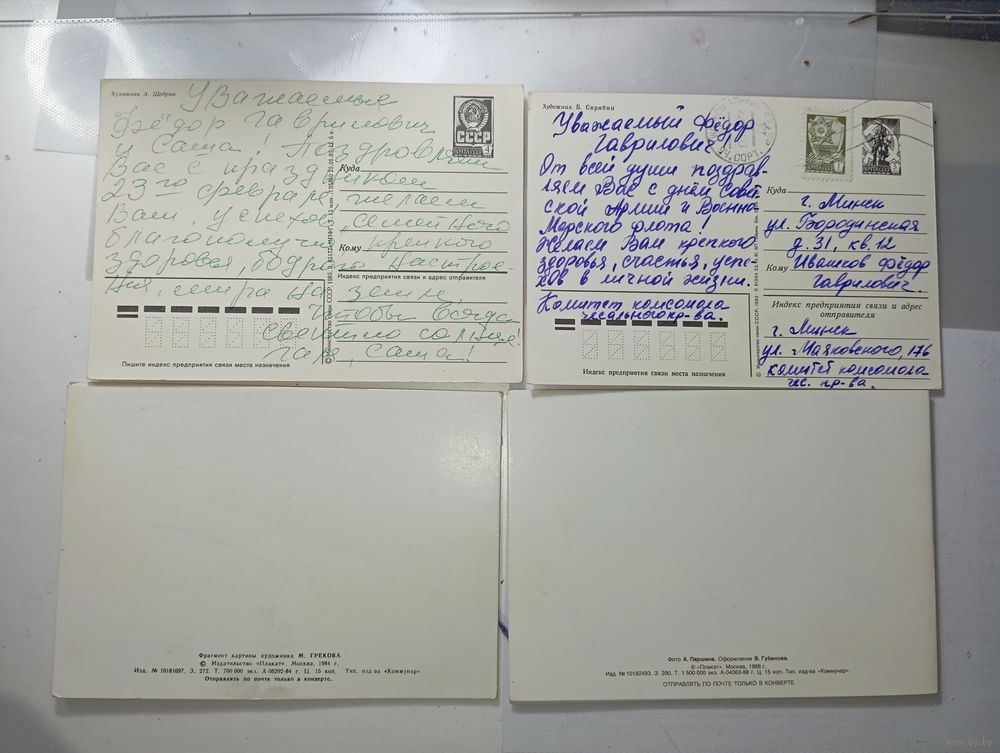 Художник А. Шедрин
Уважаемые
Фёдор Гаврилович
и Саша! Поздравляем
Вас с праздником
23го февраля, желаем
Вам, успехов, семейного
благополучия, крепкого
здоровья, бодрого настрое
ния, мира на земле,
Чтобы всегда
светило солнце!
Саша!
СССР
4
Куда
Кому
Индекс предприятия связи и адрес отправителя
Пишите индекс предприятия связи места назначения
Художник Б. Скрябин
Уважаемый Фёдор
Гаврилович
От всей души поздрав-
ляем Вас с днём Совет
ской Армии и Военно
Морского флота!
Желаем Вам крепкого
здоровья, счастья, успе-
хов в личной жизни.
Комитет комсомола
чесального пр-ва.
Индекс предприятия связи места назначения
Куда
г. Минск
ул. Бородинская
д. 31, кв. 12
Кому Ивашков Фёдор
Гаврилович.
Индекс предприятия связи и адрес
отправителя
г. Минск
ул. Маяковского, 176
комитет комсомола
чес. пр-ва.
Фрагмент картины художника М. ГРЕКОВА
© Издательство «Плакат». Москва, 1984 г.
Изд. № 10181697. З. 272. Т. 700 000 экз. А-05292-84 г. Ц. 15 коп. Тип. изд-ва «Коммунар».
Отправлять по почте только в конверте.
Фото А. Паршина. Оформление В. Губанова.
© «Плакат». Москва, 1988 г.
Изд. № 10182493. З. 200. Т. 1 500 000 экз. А-04363-88 г. Ц. 15 коп. Тип. изд-ва «Коммунар».
ОТПРАВЛЯТЬ ПО ПОЧТЕ ТОЛЬКО В КОНВЕРТЕ
www.ay.by